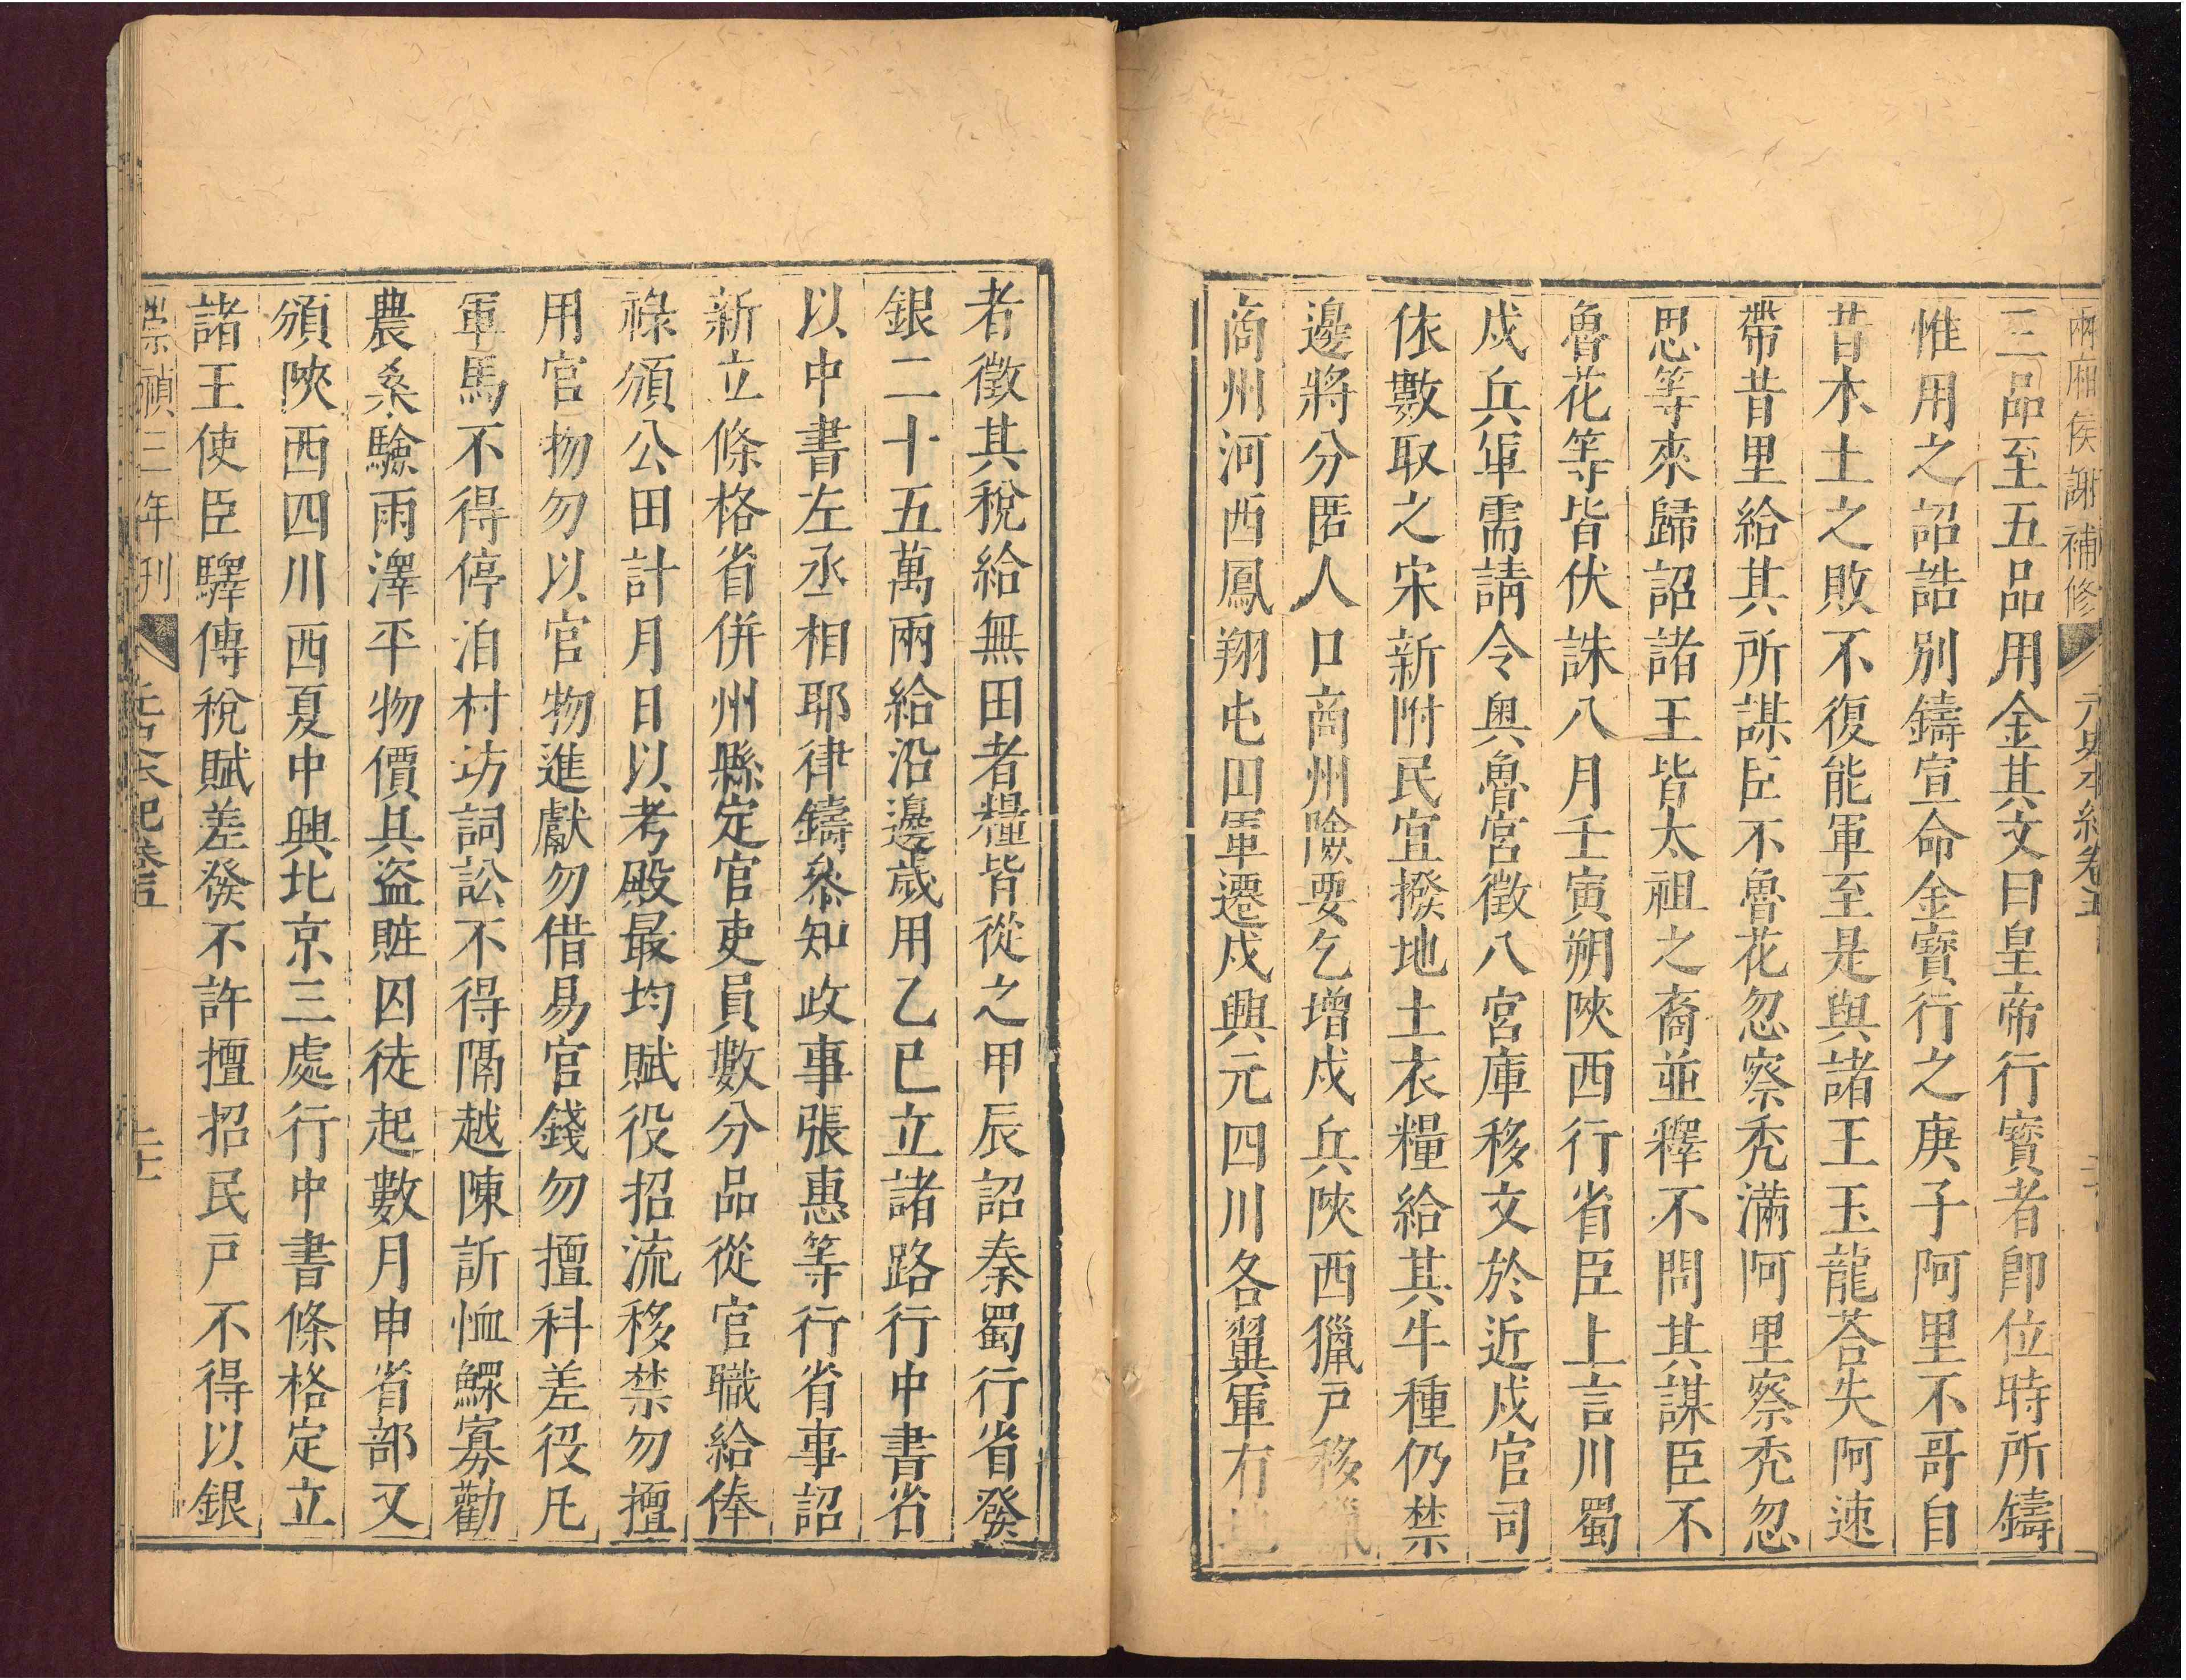 兩廂侯謝補修 元史本紀卷五
三品至五品用金其文曰皇帝行寳者卽位時所鑄
惟用之詔誥別鑄宣命金寳行之庚子阿里不哥自
昔木土之敗不復能軍至是與諸王玉龍荅失阿速
帶昔里給其所謀臣不魯花忽察禿滿阿里察禿忽
思等來歸詔諸王皆太祖之裔並釋不問其謀臣不
魯花等皆伏誅八月壬寅朔陜西行省臣上言川蜀
戍兵軍需請令奥魯官徵八官庫移文於近戍官司
依數取之宋新附民宜撥地土衣糧給其牛種仍禁
邊將分匿人口商州險要乞增戍兵陜西獵戶移
商州河西鳳翔屯田軍遷戍興元四川各翼軍有
者徵其稅給無田者糧皆從之甲辰詔秦蜀行省發
銀二十五萬兩給沿邊歲用乙巳立諸路行中書省
以中書左丞相耶律鑄叅知政事張惠等行省事詔
新立條格省併州縣定官吏員數分品從官職給俸
祿頒公田計月日以考殿最均賦役招流移禁勿擅
用官物勿以官物進獻勿借易官錢勿擅科差役凡
軍馬不得停泊村坊詞訟不得隔越陳訴恤鰥寡勸
農桑驗雨澤平物價具盗賍囚徒起數月申省部又
頒陜西四川西夏中興北京三處行中書條格定立
諸王使臣驛傳稅賦差發不許擅招民戶不得以銀
崇禎三年刊 元史本紀卷五